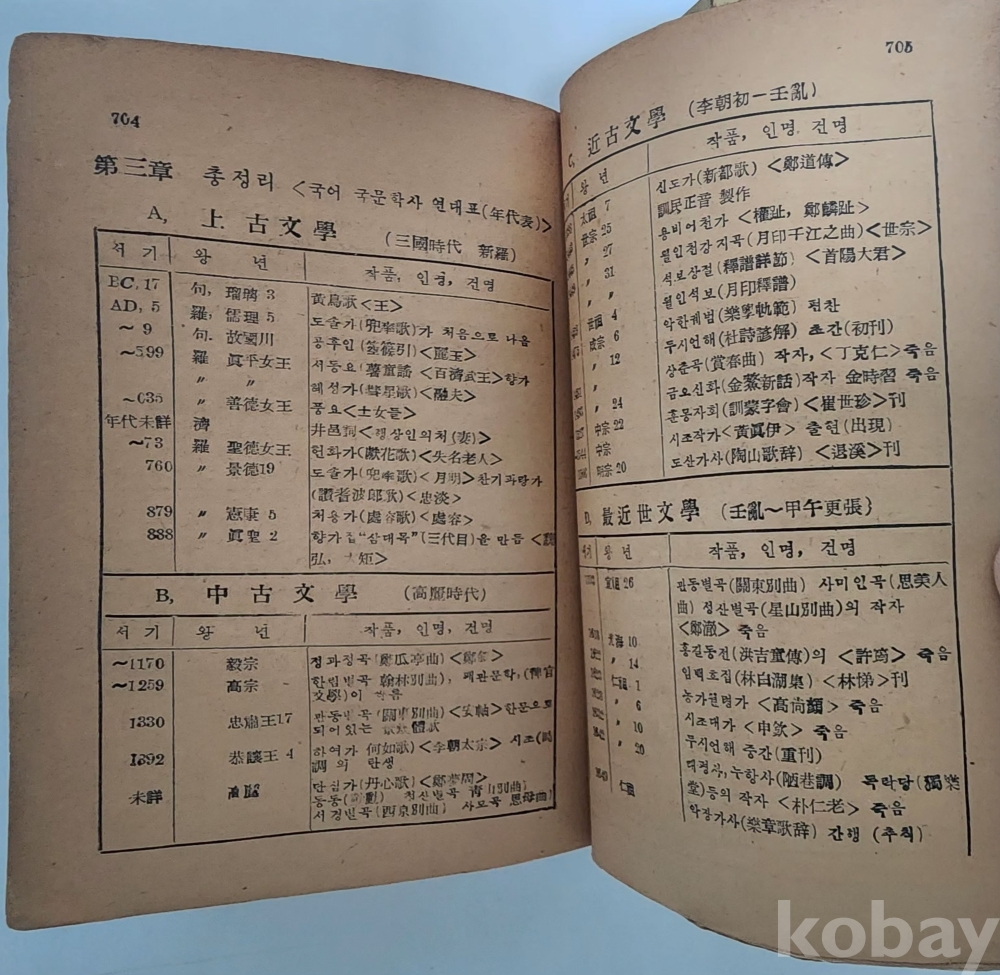 704
第三章 총정리 <국어 국문학사 연대표(年代表)>
A, 上古文學 (三國時代 新羅)
서기 왕년 작품, 인명, 건명
BC, 17 句, 瑠璃 3 黃鳥歌<王>
AD, 5 羅, 儒理 5 도솔가(兜率歌)가 처음으로 나옴
~ 9 句. 故國川 공후인(箜篌引)<麗玉>
~599 羅 眞平女王 서동요(薯童謠<百濟武王>향가
〃 〃 혜성가(彗星歌)<融夫>
~635 善德女王 풍요<士女들>
年代未詳 濟 井邑詞<행상인의처(妻)>
~73 羅 聖德女王 헌화가(獻花歌)<失名老人>
760 〃 景德19 도솔가(兜率歌)<月明>찬기파랑가
(讚耆波郎歌)<忠淡>
879 〃 憲康 5 처용가(處容歌)<處容>
888 〃 眞聖 2 향가집“삼대목”(三代目)을 만듬
弘, 大矩>
B, 中古文學 (高麗時代)
서기 왕년 작품, 인명, 건명
~1170 毅宗 정과정곡(鄭瓜亭曲)
~1259 高宗 한림별곡 翰林別曲), 패관문학,(稗官
文學)이
1330 忠肅王17 관동별곡(關東別曲)<安軸>한문으로
되어있는
1392 恭讓王 4 하여가 何如歌)<李朝太宗> 시조(時
調의 탄생
단심가(丹心歌)<鄭夢周>
未詳 高麗 동동 청산별곡 靑山別曲)
서경별곡(西京別曲) 사모곡 思母曲)
705
C, 近古文學 (李朝初―壬亂)
왕년 작품, 인명, 건명
太祖 7 신도가(新都歌)<鄭道傳>
世宗 25 訓民正音 製作
〃 27 용비어천가<權趾, 鄭麟趾>
〃 31 월인천강지곡(月印千江之曲)<世宗>
〃 〃 석보상절(釋譜詳節)<首陽大君>
世祖 4 월인석보(月印釋譜)
成宗 6 악한궤범(樂學軌範) 편찬
〃 12 두시언해(杜詩諺解) 초간(初刊)
〃 상춘곡(賞春曲) 작자,<丁克仁>죽음
〃 24 금오신화(金鰲新話)작자 金時習 죽음
中宗 22 훈몽자회(訓蒙字會)<崔世珍>刊
中宗 시조작가<黃眞伊> 출현(出現)
明宗 20 도산가사(陶山歌辞)<退溪>刊
D, 最近世文學 (壬亂~甲午更張)
서기 왕년 작품, 인명, 건명
宣祖 26 관동별곡(關東別曲) 사미인곡(思美人
曲) 성산별곡(星山別曲)의 작자
<鄭澈> 죽음
光海 10 홍길동전(洪吉童傳)의 <許筠> 죽음
〃 14 임백호집(林白湖集)<林悌>刊
仁祖 1 <高尚顔> 죽음
〃 6 시조대가 <申欽> 죽음
〃 10 두시언해 중간(重刊)
〃 20 태평사,누항사(陋巷調) 독락당(獨樂
堂)등의 작자 <朴仁老> 죽음
仁祖 악장가사(樂章歌辞) 간행 (추측)
kobay